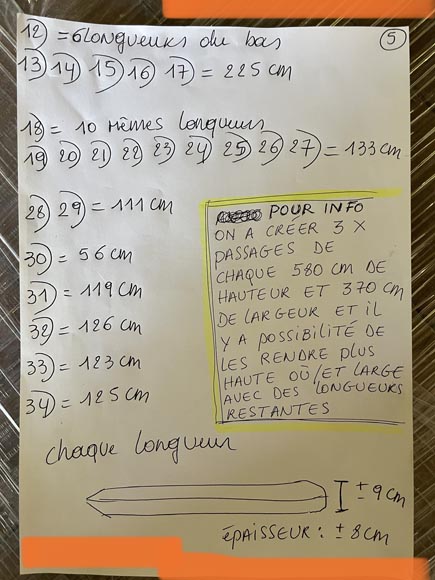 5
12) = 6 longueurs du bas
13) 14) 15) 16) 17) = 225 cm
18) = 10 mêmes longueurs
19) 20) 21) 22) 23) 24) 25) 26) 27) = 133 cm
28) 29) = 111 cm
30) = 56 cm
31) = 119 cm
32) = 126 cm
33) = 123 cm
34) = 125 cm
POUR INFO
ON A CRÉER 3 X
PASSAGES DE
CHAQUE 580 CM DE
HAUTEUR ET 370 CM
DE LARGEUR ET IL
Y A POSSIBILITÉ DE
LES RENDRE PLUS
HAUTE OÙ/ET LARGE
AVEC DES LONGUEURS
RESTANTES
chaque longueur
± 9 cm
ÉPAISSEUR : ± 8 cm